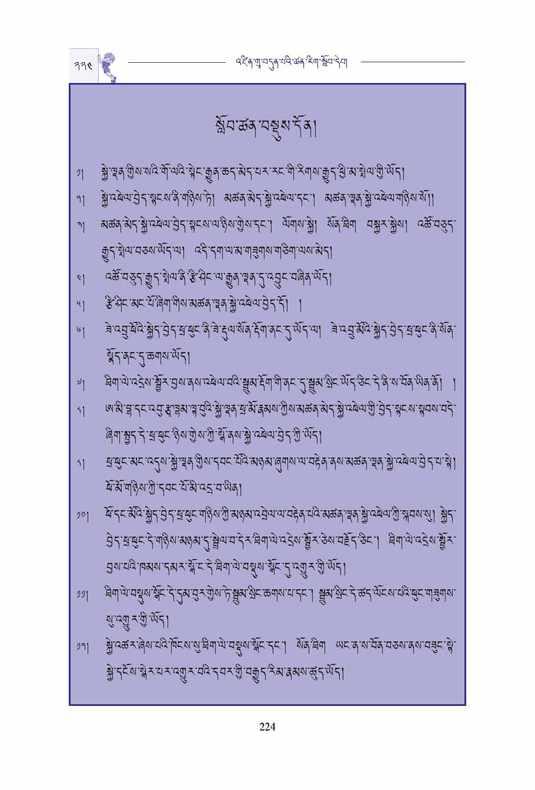 ༢༢༤
འཛིན་གྲྭ་བདུན་པའི་ཚན་རིག་སློབ་དེབ།
སློབ་ཚན་བསྡུས་དོན།
༡། སྐྱེ་ལྡན་གྱིས་སའི་གོ་ལའི་སྟེང་རྒྱུན་ཆད་མེད་པར་རང་གི་རིགས་རྒྱུད་ཕྱི་མ་སྤེལ་གྱི་ཡོད།
༢། སྐྱེ་འཕེལ་བྱེད་སྟངས་ནི་གཉིས་ཏེ། མཚན་མེད་སྐྱེ་འཕེལ་དང་། མཚན་ལྡན་སྐྱེ་འཕེལ་གཉིས་སོ།།
༣། མཚན་མེད་སྐྱེ་འཕེལ་བྱེད་སྟངས་ལ་ཉིས་གྱེས་དང་། ཡོགས་སྐྱེ། སོན་ཐིག བསྐྱར་སྐྱེས། འཚོ་བཅུད་
རྒྱུད་སྤེལ་བཅས་ཡོད་ལ། འདི་དག་ལ་མ་གཟུགས་གཅིག་ལས་མེད།
༤། འཚོ་བཅུད་རྒྱུད་སྤེལ་ནི་རྩི་ཤིང་ལ་རྒྱུན་ལྡན་དུ་འབྱུང་བཞིན་ཡོད།
༥། རྩི་ཤིང་མང་པོ་ཞིག་གིས་མཚན་ལྡན་སྐྱེ་འཕེལ་བྱེད་དོ། །
༦། ཟེ་འབྲུ་ཕོའི་སྐྱེད་བྱེད་ཕྲ་ཕུང་ནི་ཟེ་རྡུལ་སོན་རྡོག་ནང་དུ་ཡོད་ལ། ཟེ་འབྲུ་མོའི་སྐྱེད་བྱེད་ཕྲ་ཕུང་ནི་སོན་
སྣོད་ནང་དུ་ཆགས་ཡོད།
༧། ཐིག་ལེ་འདྲེས་སྦྱོར་བྱས་ནས་འཕེལ་བའི་སྦྲུམ་རྡོག་གི་ནང་དུ་སྦྲུམ་སྲིང་ཡོད་ཅིང་དེ་ནི་ས་བོན་ཡིན་ནོ། །
༨། ཨ་མི་བྷ་དང་འབུ་རྩྭ་བྲམ་ལྟ་བུའི་སྐྱེ་ལྡན་ཕྲ་མོ་རྣམས་ཀྱིས་མཚན་མེད་སྐྱེ་འཕེལ་གྱི་བྱེད་སྟངས་སྟབས་བདེ་
ཞིག་སྤྱད་དེ་ཕྲ་ཕུང་ཉིས་གྱེས་ཀྱི་སྒོ་ནས་སྐྱེ་འཕེལ་བྱེད་ཀྱི་ཡོད།
༩། ཕྲ་ཕུང་མང་འདུས་སྐྱེ་ལྡན་གྱིས་དབང་པོའི་མཉམ་ཞུགས་ལ་བརྟེན་ནས་མཚན་ལྡན་སྐྱེ་འཕེལ་བྱེད་པ་སྟེ།
ཕོ་མོ་གཉིས་ཀྱི་དབང་པོ་མི་འདྲ་བ་ཡིན།
༡༠། ཕོ་དང་མོའི་སྐྱེད་བྱེད་ཕྲ་ཕུང་གཉིས་ཀྱི་མཉམ་འབྲེལ་ལ་བརྟེན་པའི་མཚན་ལྡན་སྐྱེ་འཕེལ་གྱི་སྐབས་སུ། སྐྱེད་
བྱེད་ཕྲ་ཕུང་དེ་གཉིས་མཉམ་དུ་སྦྲེལ་བ་དེར་ཐིག་ལེ་འདྲེས་སྦྱོར་ཅེས་བརྗོད་ཅིང་། ཐིག་ལེ་འདྲེས་སྦྱོར་
བྱས་པའི་ཁམས་དམར་སྒོ་ང་དེ་ཐིག་ལེ་བསྡུས་སྒོང་དུ་འགྱུར་གྱི་ཡོད།
༡༡། ཐིག་ལེ་བསྡུས་སྒོང་དེ་དུམ་བུར་གྱེས་ཏེ་སྦྲུམ་སྲིང་ཆགས་པ་དང་། སྦྲུམ་སྲིང་དེ་ཚད་ལོངས་པའི་ཕུང་གཟུགས་
སུ་འགྱུར་གྱི་ཡོད།
༡༢། སྐྱེ་འཚར་ཞེས་པའི་ཁོངས་སུ་ཐིག་ལེ་བསྡུས་སྒོང་དང་། སོན་ཐིག ཡང་ན་ས་བོན་བཅས་ནས་བཟུང་སྟེ་
སྐྱེ་དངོས་སྨིན་པར་འགྱུར་བའི་དབར་གྱི་བརྒྱུད་རིམ་རྣམས་ཚུད་ཡོད།
224